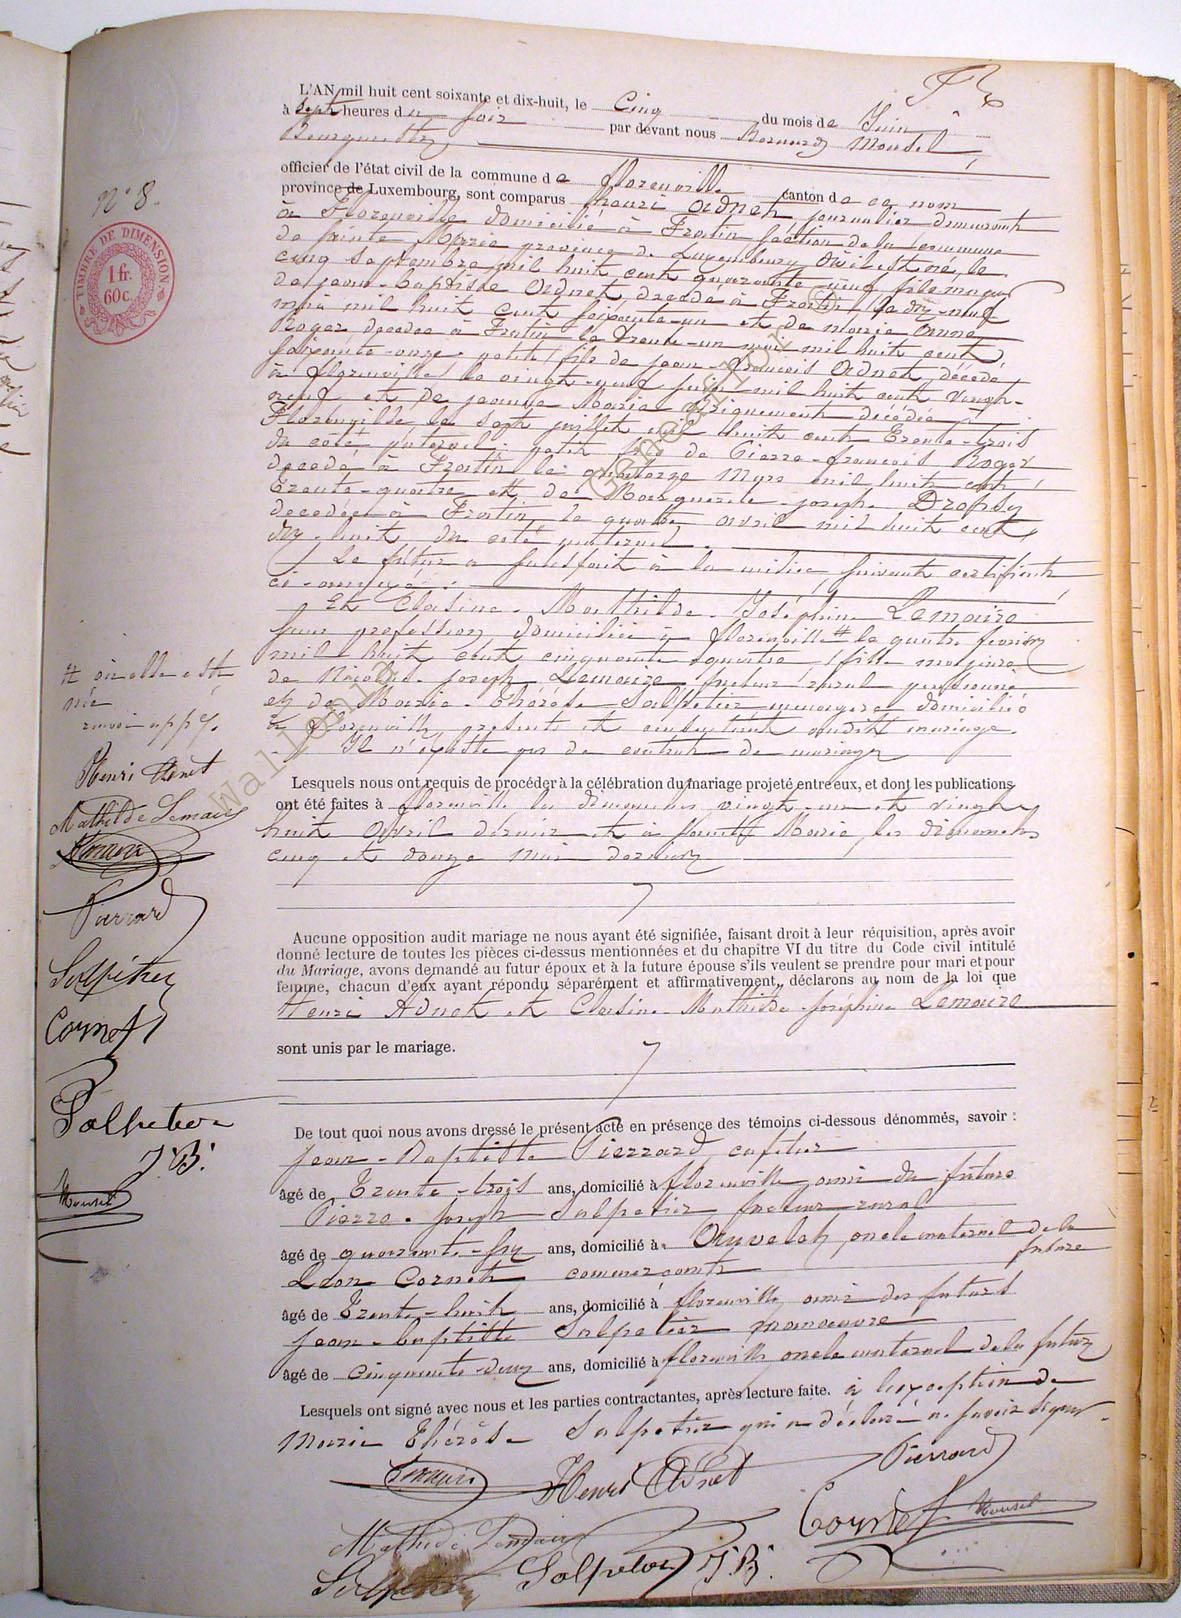 L'AN mil huit cent soixante et dix-huit, le Cinq du mois de Juin
à sept heures du soir par devant nous Bernard Mousel
Bourgmestre
officier de l'état civil de la commune de Florenville canton de ce nom
province de Luxembourg, sont comparus Henri Adnet journalier demeurant
à Florenville domicilié à Fratin section de la commune
de Sainte Marie province de Luxembourg où il est né, le
cinq septembre mil huit cent quarante neuf fils majeur
de jean-baptiste Adnet, decedé à Fratin le dix-neuf
mil huit cent soixante-un et de marie Anne
Roger decedée à Fratin le trente-un mai mil huit cent
soixante-onze. petit fils de jean-françois Adnet, décédé
à florenville le vingt-neuf juin mil huit cent vingt-
neuf et de jeanne Marie décédée à
Florenville le sept juillet mil huit cent Trente-trois
du côté paternel; petit fils de Pierre-françois Roger
decedé à Fratin le quatorze Mars mil huit cent
Trente-quatre et de Marguerite joseph Dropsy
decedée à Fratin le quatre avril mil huit cent
dix-huit, du coté maternel.
Le futur a satisfait à la milice suivant certificat
ci-annexé.
Et Clasine-Mathilde-Joséphine Lemaire
sans profession, domiciliée à florenville # le quatre fevrier
mil huit cent cinquante quatre, fille majeure
de Nicolas-joseph Lemaire facteur rural pensionné
et de Marie-Thérèse Salpetier menagère domiciliés
à Florenville présents et consentant audit mariage.
Il n'existe pas de contrat de mariage
Lesquels nous ont requis de procéder à la célébration du mariage projeté entre eux, et dont les publications
ont été faites à florenville les dimanches vingt-un et vingt-
huit Avril dernier et à Sainte Marie les dimanches
cinq et douze mai dernier
Aucune opposition audit mariage ne nous ayant été signifiée, faisant droit à leur réquisition, après avoir
donné lecture de toutes les pièces ci-dessus mentionnées et du chapitre VI du titre du Code civil intitulé
du Mariage, avons demandé au futur époux et à la future épouse s'ils veulent se prendre pour mari et pour
femme, chacun d'eux ayant répondu séparément et affirmativement, déclarons au nom de la loi que
Henri Adnet et Clasine-Mathilde-Joséphine Lemaire
sont unis par le mariage.
De tout quoi nous avons dressé le présent acte en présence des témoins ci-dessous dénommés, savoir :
Jean-Baptiste Pierrard, cafetier
âgé de Trente-trois ans, domicilié à florenville ami du future
Pierre-Joseph Salpetier facteur rural
âgé de quarante-six ans, domicilié à oncle maternel de la
future
Léon Cornet commerçant
âgé de Trente-huit ans, domicilié à florenville ami des futurs
Jean-baptiste Salpetier manoeuvre
âgé de cinquante-deux ans, domicilié à florenville oncle maternel de la future
Lesquels ont signé avec nous et les parties contractantes, après lecture faite. à l'exception de
Marie Thérèse Salpetier qui a déclaré ne savoir signer.
Lemaire Henri Adnet Pierrard
Mathilde Lemaire Cornet Mousel
Salpetier Salpetier J.B.
N° 8.
TIMBRE DE DIMENSION
1 fr.
60c.
# où elle est
née
renvoi app.
Henri Adnet
Mathilde Lemaire
Lemaire
Pierrard
Salpetier
Cornet
Salpetier
J.B.
Mousel